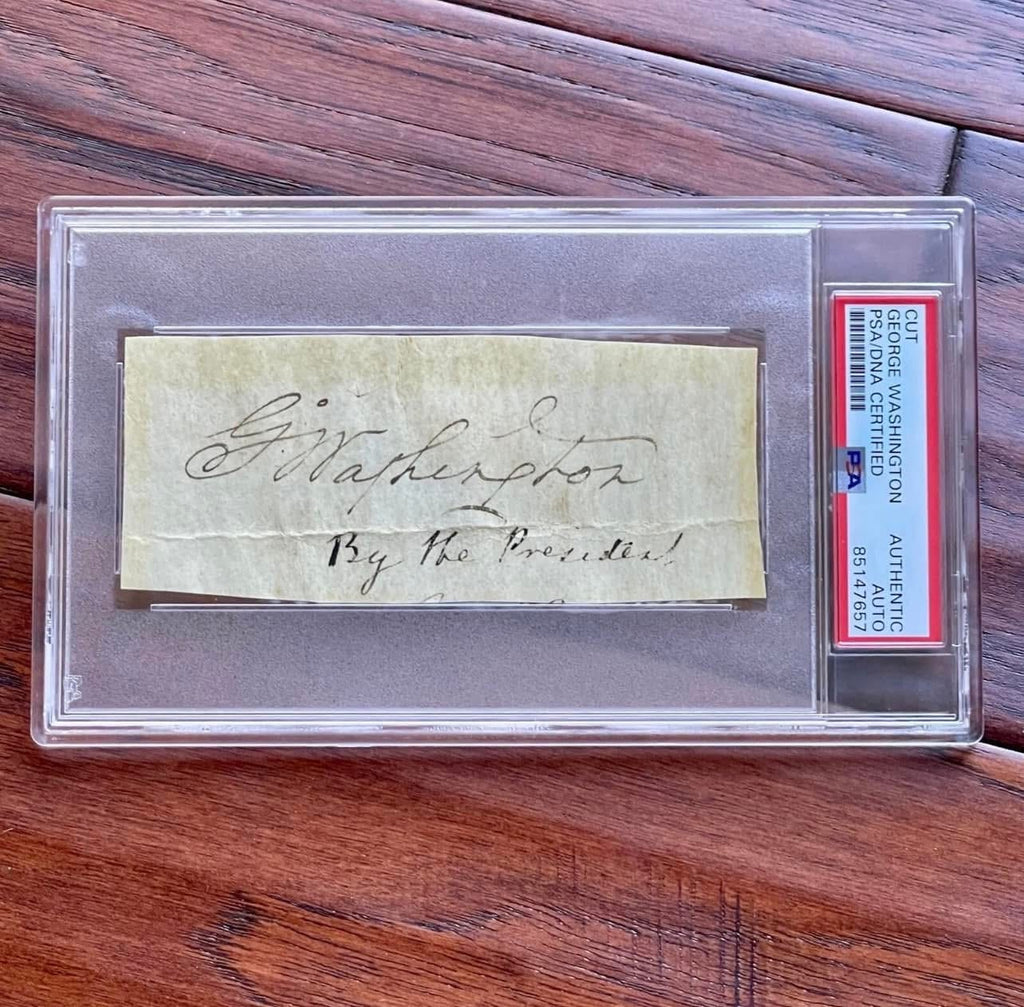 G. Washington
By the President
CUT
GEORGE WASHINGTON
PSA/DNA CERTIFIED
AUTHENTIC
AUTO
85147657
PSA